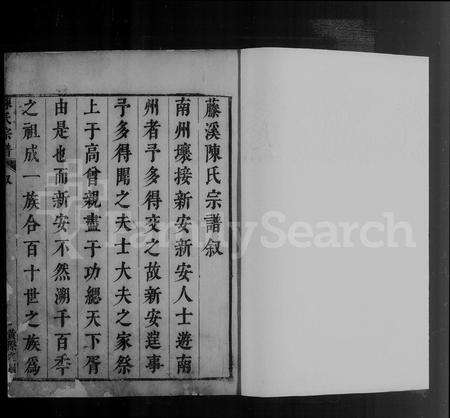 藤溪陳氏宗譜叙
南州壤接新安新安人士遊南
州者予多得交之故新安逹事
予多得聞之夫士大夫之家祭
上于高曾親盡于功緦天下胥
由是也而新安不然溯千百年
之祖成一族合百十世之族為
陳氏宗譜 叙
FamilySearch